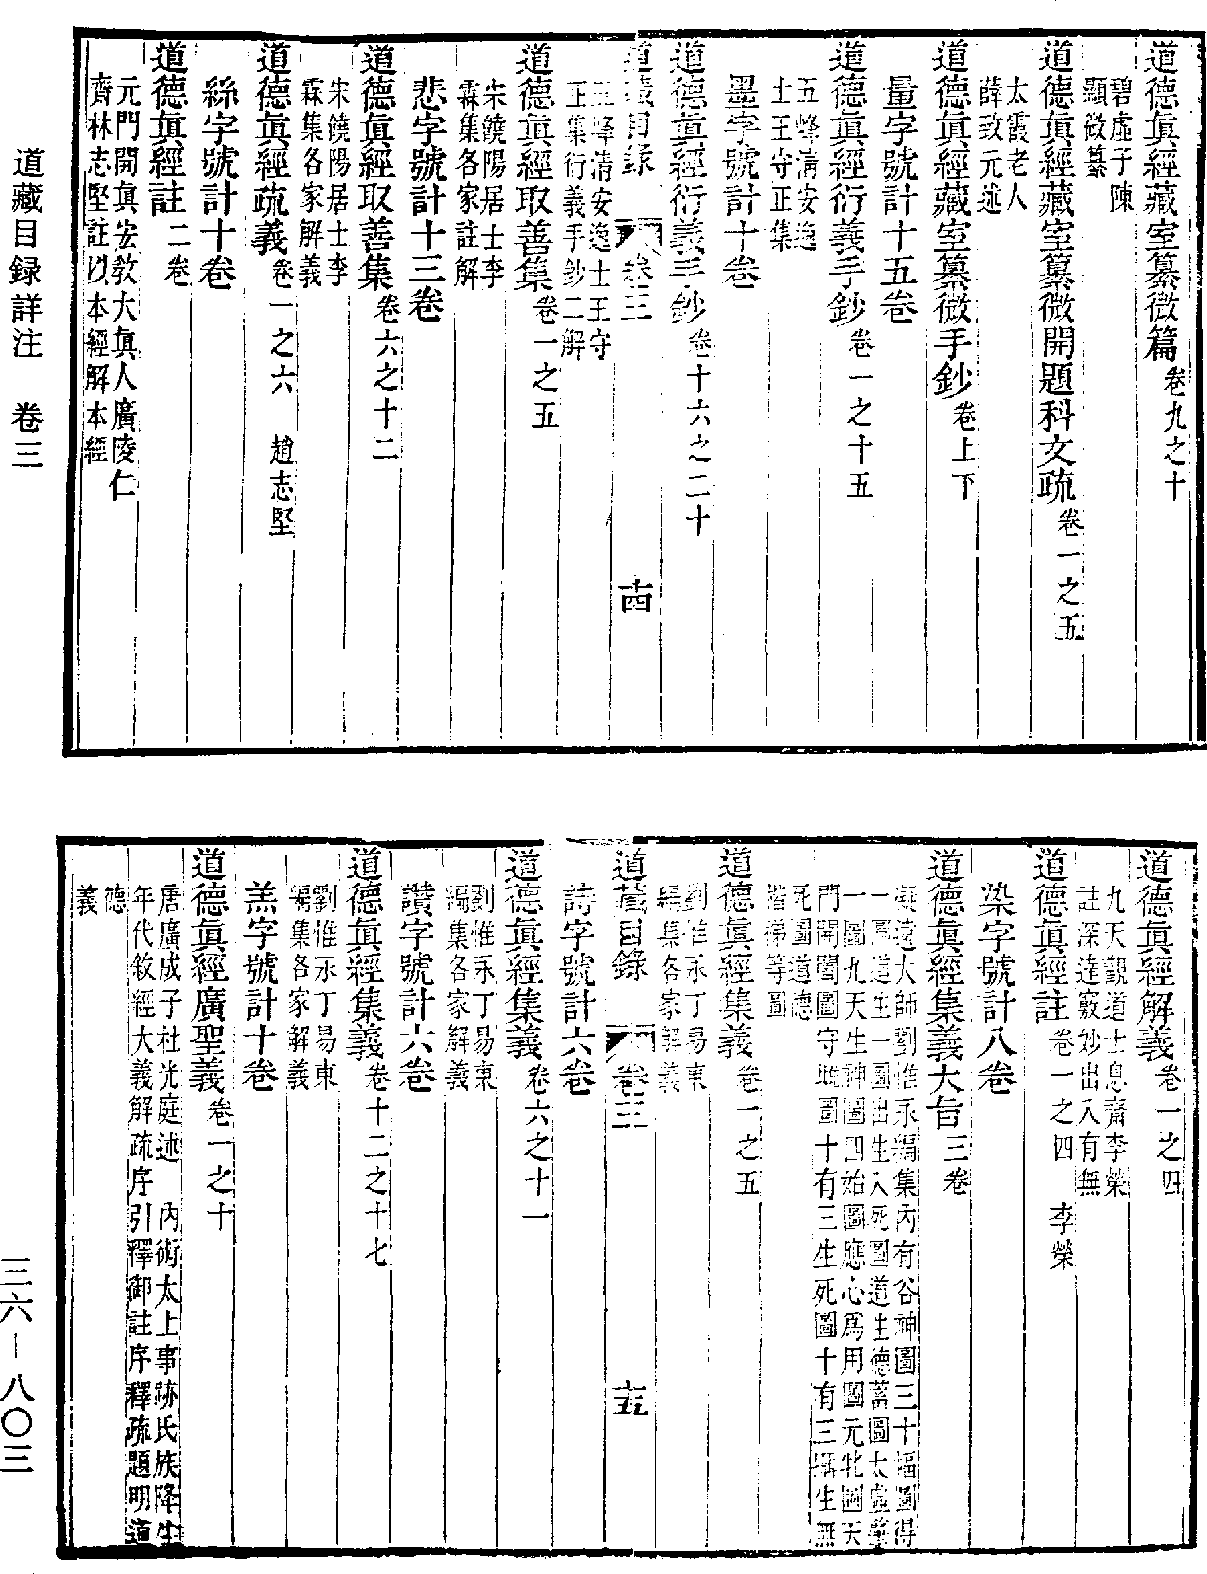 道德眞經藏室纂微篇卷九之十
碧虛子陳
顯微纂
道德眞經藏室纂微開題科文疏卷一之五
太霞老人
薛致元述
道德眞經藏室纂微手鈔卷上下
量字號計十五卷
道德眞經衍義手鈔卷一之十五
五峰清安逸
士王守正集
墨字號計十卷
道德眞經衍義手鈔卷十六之二十
道藏目錄 卷三 十四
五峰清安逸士王守
正集衍義手鈔二解
道德眞經取善集卷一之五
宋饒陽居士李
霖集各家註解
悲字號計十三卷
道德眞經取善集卷六之十二
宋饒陽居士李
霖集各家解義
道德眞經疏義卷一之六 趙志堅
絲字號計十卷
道德眞經註二卷
元門開眞安教大眞人廣陵仁
齊林志堅註以本經解本經
道藏目録詳注 卷三
道德眞經解義卷一之四
九天觀道士息齋李榮
註深達竅妙出入有無
道德眞經註卷一之四 李榮
染字號計八卷
道德眞經集義大旨三卷
凝遠大師劉惟永編集內有谷神圖三十輻圖得
一圖道生一圖出生入死圖道生德蓄圖大盈
一圖九天生神圖四始圖應心爲用圖元牝圖天
門開闔圖守 圖十有三生死圖十有三攝生無
死圖道德
階梯等圖
道德眞經集義卷一之五
劉惟永丁易東
編集各家解義
道藏目錄 卷三 十五
詩字號計六卷
道德眞經集義卷六之十一
劉惟永丁易東
編集各家解義
讚字號計六卷
道德眞經集義卷十二之十七
劉惟永丁易東
編集各家解義
羔字號計十卷
道德眞經廣聖義卷一之十
唐廣成子社光庭述 內術太上事跡氏族降生
年代敘經大義解疏序引釋御註序釋疏題明道
德
義
三六－八〇三